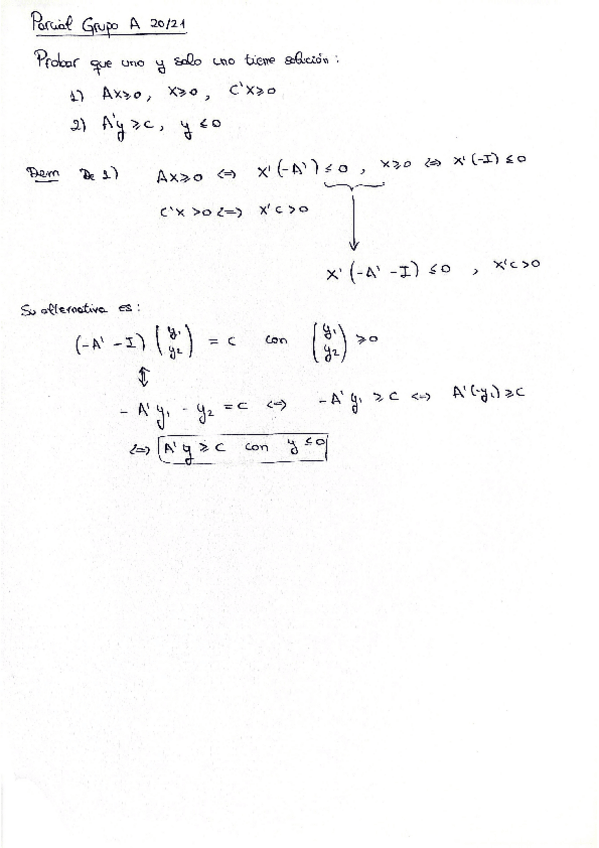 Parcial Grupo A 20/21
Probar que uno y solo uno tiene solución:
1) Ax≥0, x≥0, C'x≥0
2) A'y ≥ c, y ≤ 0
Dem De 1) Ax≥0 <=> x'(-A') ≤ 0, x≥0 <=> x'(-I) ≤ 0
C'x >0 <=> x'c > 0
x'(-A' -I) ≤ 0 , x'c > 0
Su alternativa es:
(-A' -I) (y₁ y₂) = c con (y₁ y₂) ≥ 0
⇕
- A'y₁ - y₂ = c <=> -A'y₁ ≥ c <=> A'(-y₁) ≥ c
<=> A'y ≥ c con y ≤ 0